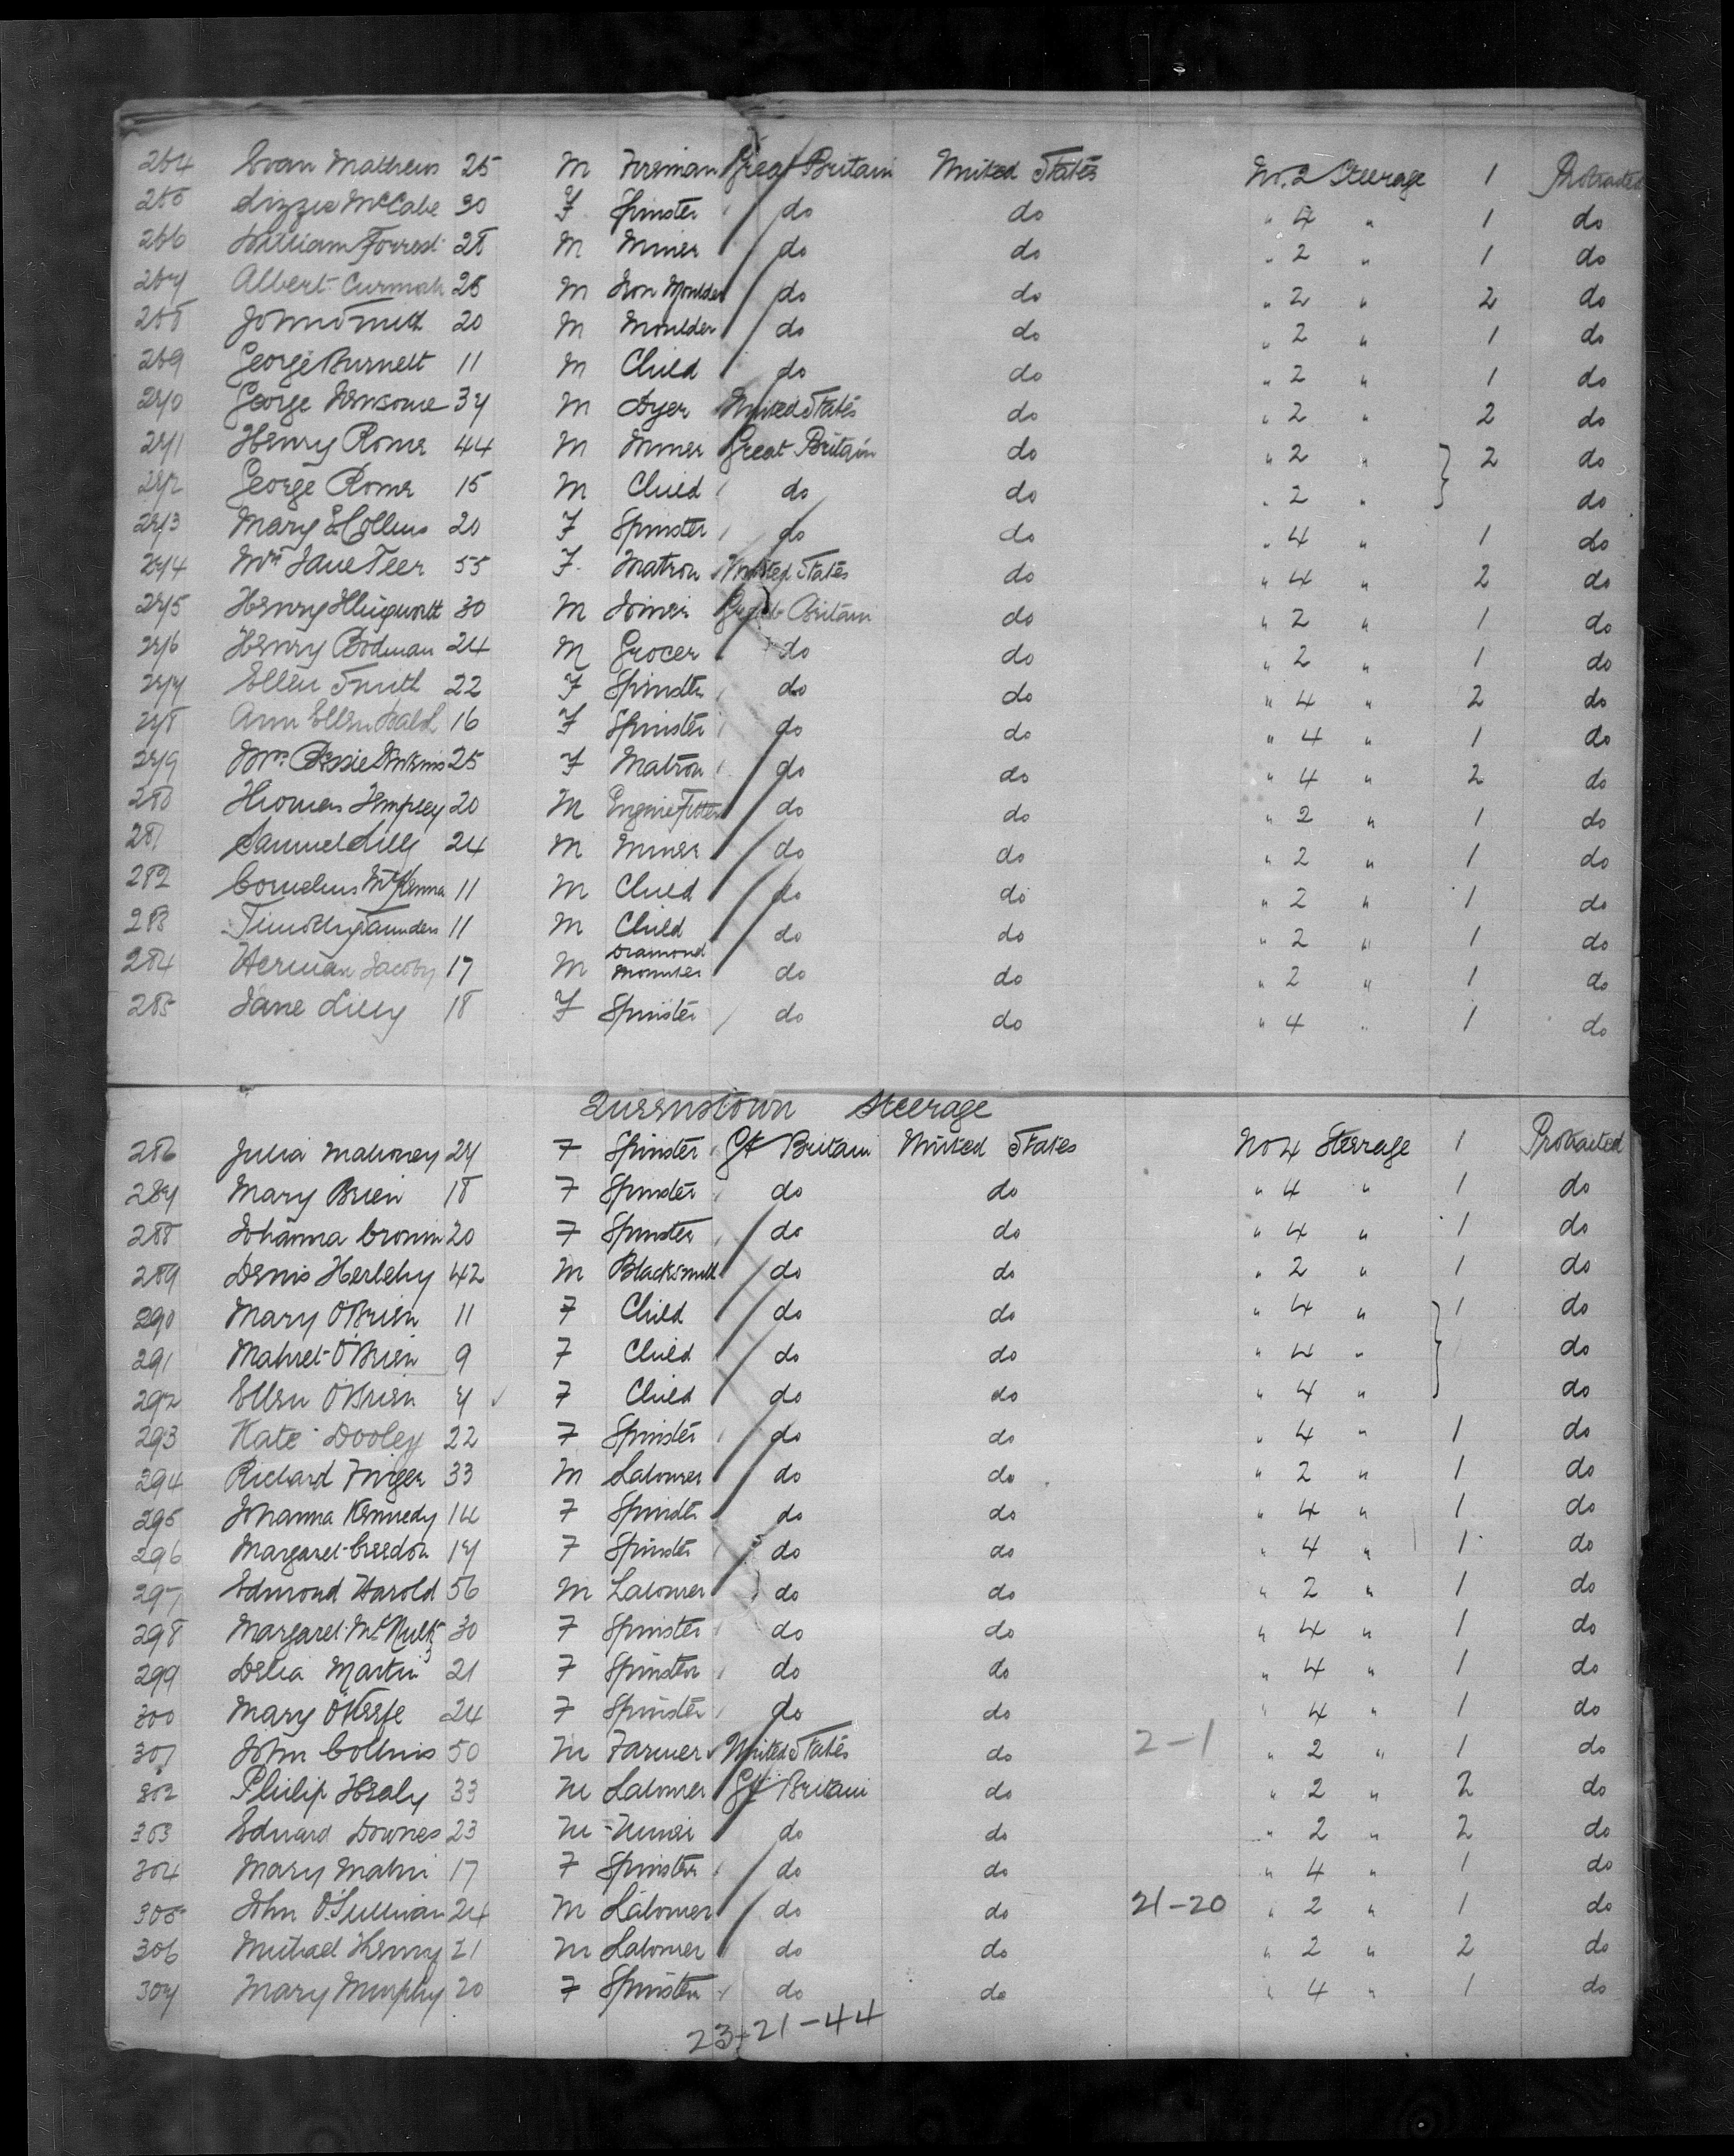 264 Evan Mathews 25 M Fireman Great Britain United States No. 2 Steerage 1 Protracted
265 Lizzie McCabe 30 F Spinster do do " 4 " 1 do
266 William Forrest 28 M Miner do do " 2 " 1 do
267 Albert 25 M Iron Moulder do do " 2 " 2 do
268 John Smith 20 M Moulder do do " 2 " 1 do
269 George Burnett 11 M Child do do " 2 " 1 do
270 George Newsome 37 M Dyer United States do " 2 " 2 do
271 Henry Rome 44 M Great Britain do " 2 " 2 do
272 George Rome 15 M Child do do " 2 " do
273 Mary E Collins 20 F Spinster do do " 4 " 1 do
274 Mrs Jane Teer 55 F Matron United States do " 4 " 2 do
275 Henry Illingworth 30 M Joiner Great Britain do " 2 " 1 do
276 Henry Bodman 24 M Grocer do do " 2 " 1 do
277 Ellen Smith 22 F Spinster do do " 4 " 2 do
278 Ann Ellen 16 F Spinster do do " 4 " 1 do
279 Mrs Bessie 25 F Matron do do " 4 " 2 do
280 Thomas 20 M Engine Fitter do do " 2 " 1 do
281 Samuel Lilly 24 M Miner do do " 2 " 1 do
282 Cornelius McKenna 11 M Child do do " 2 " 1 do
283 Timothy Saunders 11 M Child do do " 2 " 1 do
284 Herman Jacoby 17 M Diamond Mounter do do " 2 " 1 do
285 Jane Lilly 18 F Spinster do do " 4 " 1 do
Queenstown Steerage
286 Julia Mahoney 27 F Spinster Gt Britain United States No 4 Steerage 1 Protracted
287 Mary Brien 18 F Spinster do do " 4 " 1 do
288 Johanna Cronin 20 F Spinster do do " 4 " 1 do
289 Denis Herlehy 42 M Blacksmith do do " 2 " 1 do
290 Mary O'Brien 11 F Child do do " 4 " 1 do
291 O'Brien 9 F Child do do " 4 " do
292 Ellen O'Brien 7 F Child do do " 4 " do
293 Kate Dooley 22 F Spinster do do " 4 " 1 do
294 Richard 33 M Labourer do do " 2 " 1 do
295 Johanna Kennedy 14 F Spinster do do " 4 " 1 do
296 Margaret Creedon 17 F Spinster do do " 4 " 1 do
297 Edmond Harold 56 M Labourer do do " 2 " 1 do
298 Margaret McNulty 30 F Spinster do do " 4 " 1 do
299 Delia Martin 21 F Spinster do do " 4 " 1 do
300 Mary O'Keefe 24 F Spinster do do " 4 " 1 do
301 John Collins 50 M Farmer United States do 2-1 " 2 " 1 do
302 Philip Healy 33 M Labourer Gt Britain do " 2 " 2 do
303 Edward Downes 23 M Miner do do " 2 " 2 do
304 Mary 17 F Spinster do do " 4 " 1 do
305 John O'Sullivan 24 M Labourer do do 21-20 " 2 " 1 do
306 Michael Kenny 21 M Labourer do do " 2 " 2 do
307 Mary Murphy 20 F Spinster do do " 4 " 1 do
23+21-44